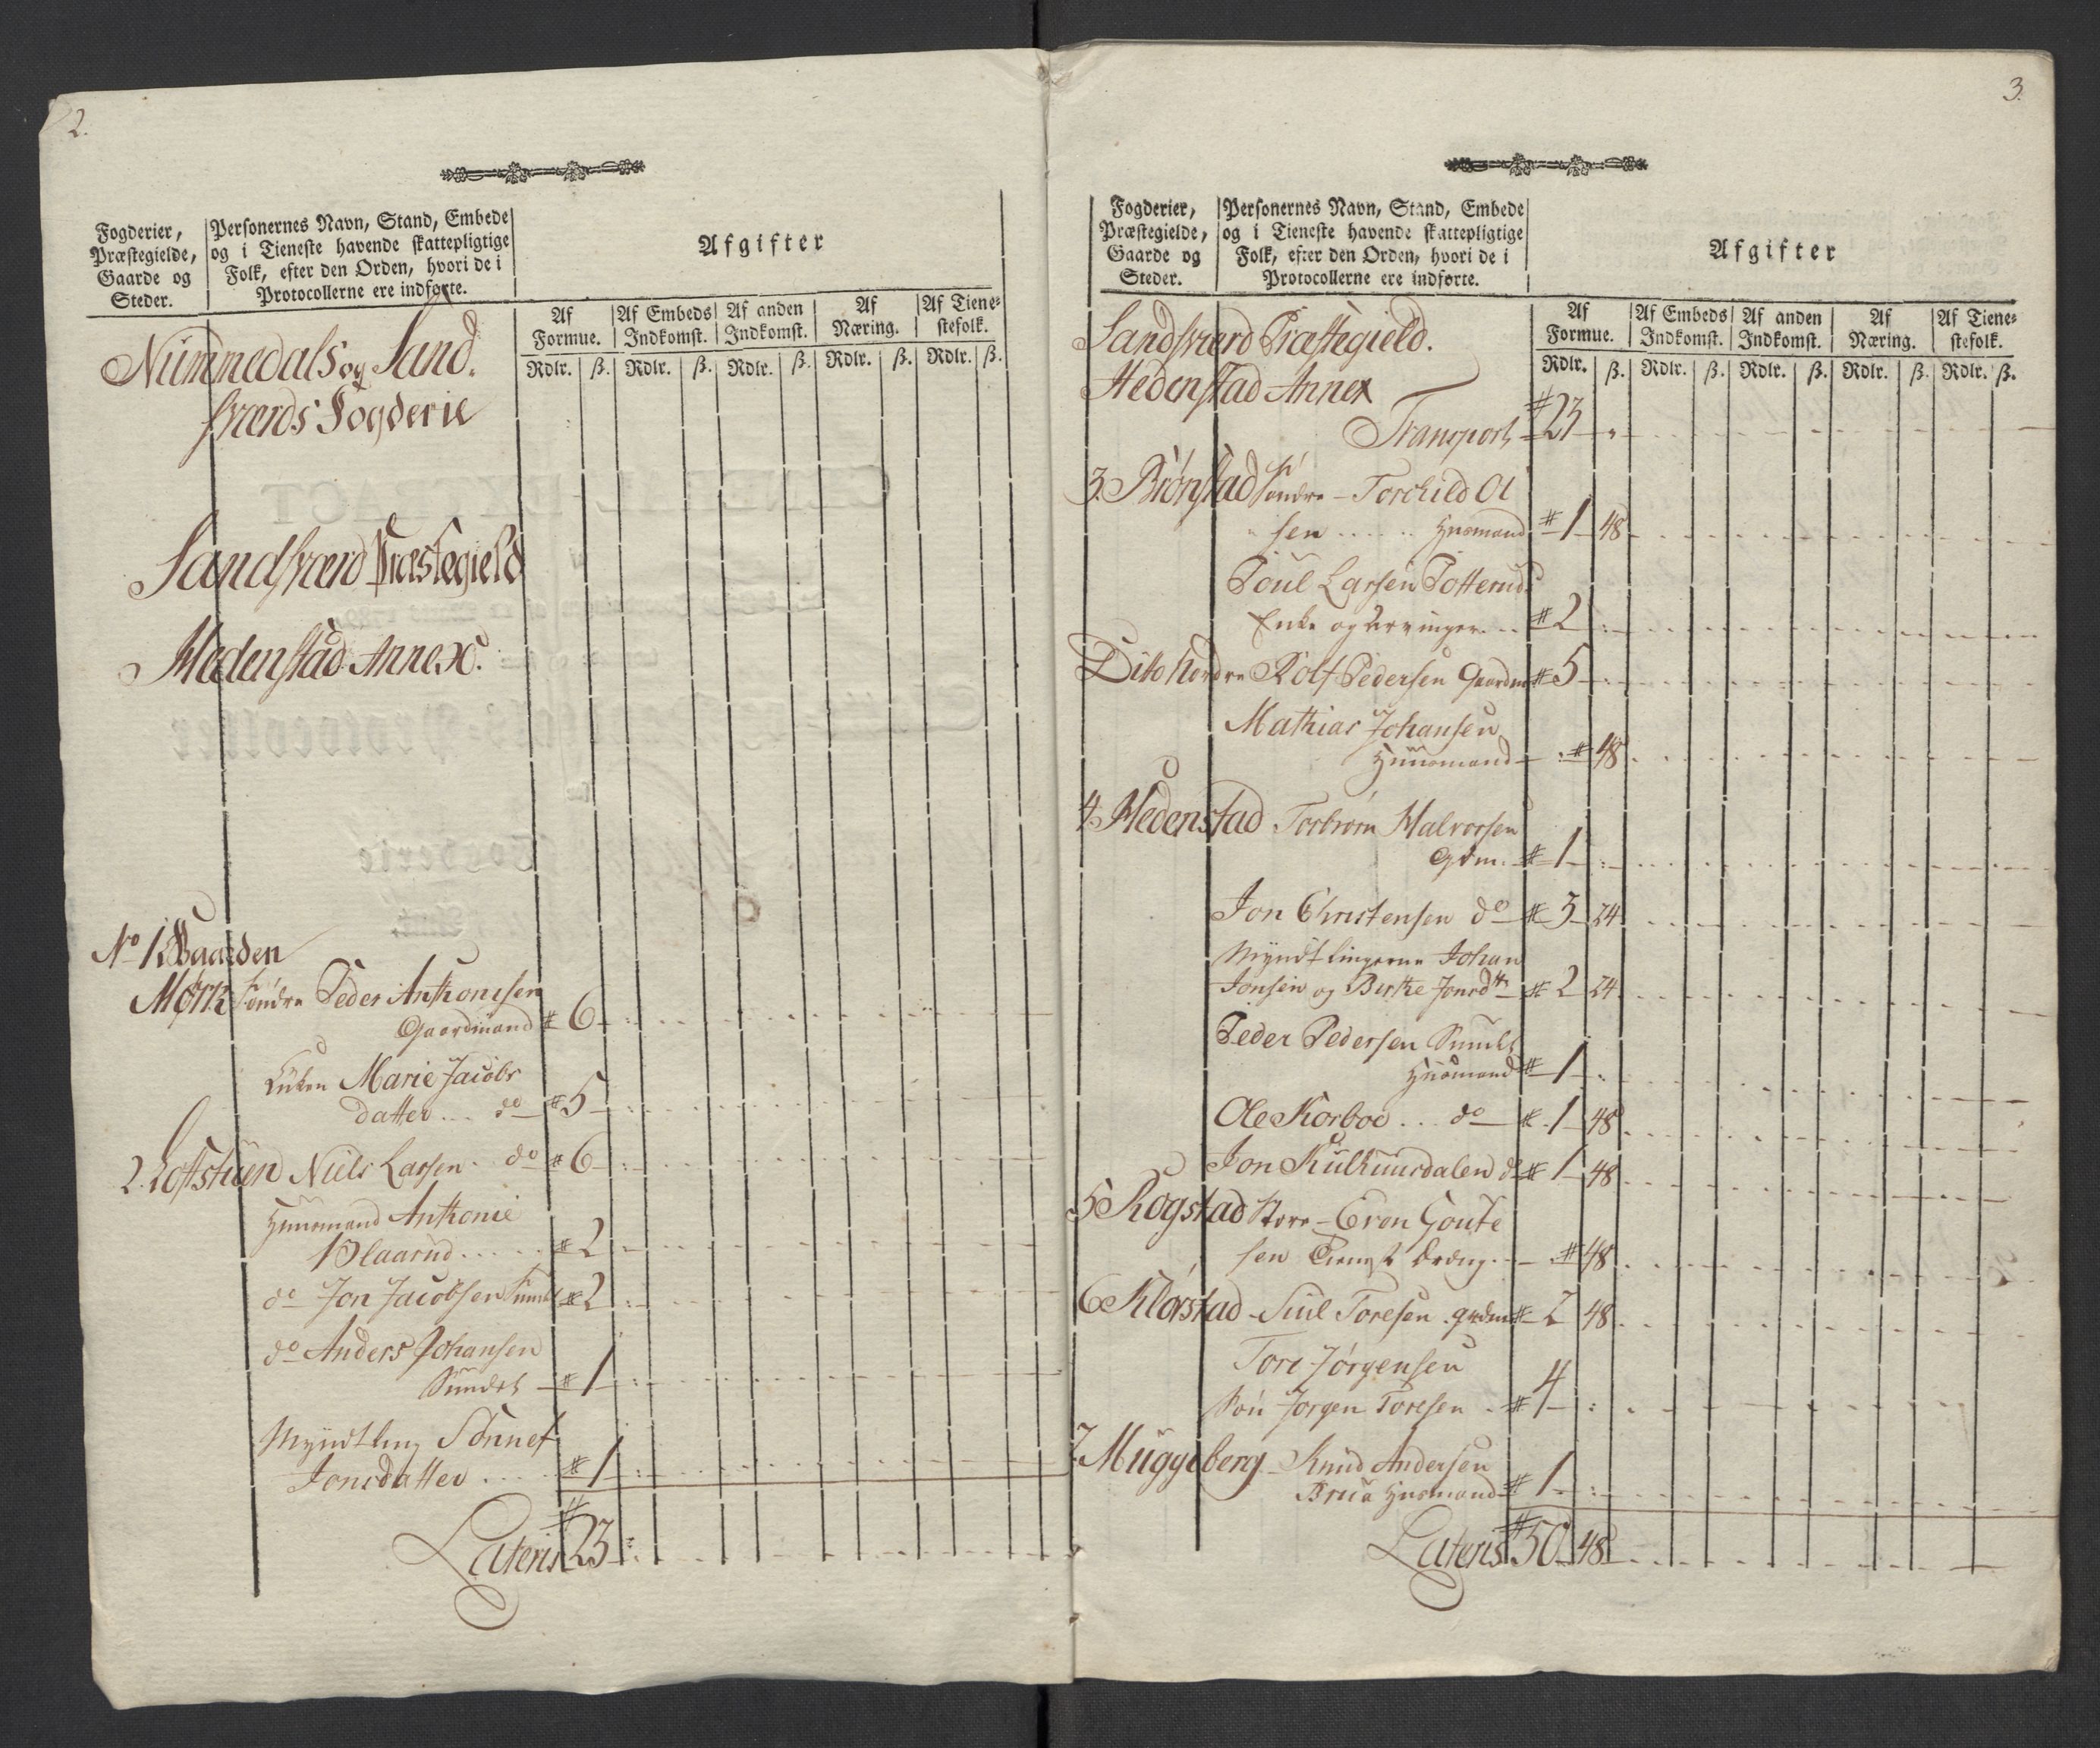 2.
Fogderier,
Præstegielde,
Gaarde og
Steder.
Personernes Navn, Stand, Embede
og i Tieneste havende skattepligtige
Folk, efter den Orden, hvori de i
Protocollerne ere indførte.
Afgifter
Af Formue. Af Embeds Indkomst. Af anden Indkomst. Af Næring. Af Tienestefolk.
Rdlr. ß. Rdlr. ß. Rdlr. ß. Rdlr. ß. Rdlr. ß.
Nummedals og Sand-
sværds Fogderie
Sandsværd Præstegield
Hedenstad Annex.
No 1 Gaarden
Mørk søndre Peder Anthonisen
Gaardmand # 6 :
Enken Marie Jacobs
datter ... do # 5 :
2. Loftstuen Niels Larsen do # 6 :
Huusmand Anthonie
Blaarud ..... # 2
do Jon Jacobsen # 2 :
do Anders Johansen
Sundet # 1 :
Myndtling Sønnef
Jonsdatter .... # 1 :
Lateris # 23 :
3.
Fogderier,
Præstegielde,
Gaarde og
Steder.
Personernes Navn, Stand, Embede
og i Tieneste havende skattepligtige
Folk, efter den Orden, hvori de i
Protocollerne ere indførte.
Afgifter
Af Formue. Af Embeds Indkomst. Af anden Indkomst. Af Næring. Af Tienestefolk.
Rdlr. ß. Rdlr. ß. Rdlr. ß. Rdlr. ß. Rdlr. ß.
Sandsværd Præstegield.
Hedenstad Annex
Transport # 23
3. Biørnstad søndre - Torchild Ol
sen ..... Husmand # 1 48
Poul Larsen Potterud
Enke og Arvinger ... # 2 :
Dito Nordre Rolf Pedersen Gaardm # 5 :
Mathias Johansen
Huusmand # 48
4. Hedenstad Torbiørn Halvorsen
Gdm. # 1 :
Jon Christensen do # 5 24
Myndtlingerne Johan
Jonsen og Birthe Jonsdtr # 2 24
Peder Pedersen
Husmand # 1 :
Ole Korboe ... do # 1 48
Jon Kulhuusdalen do # 1 48
5 Rogstad store - Even Goute
sen Tienist Dreng ... # 48
6 Klørstad - Juul Toresen grdm # 2 48
Tore Jørgensen
Søn Jørgen Toresen # 4 :
7. Muggeberg - Knud Andersen
Brua Husmand # 1 :
Lateris # 50 48